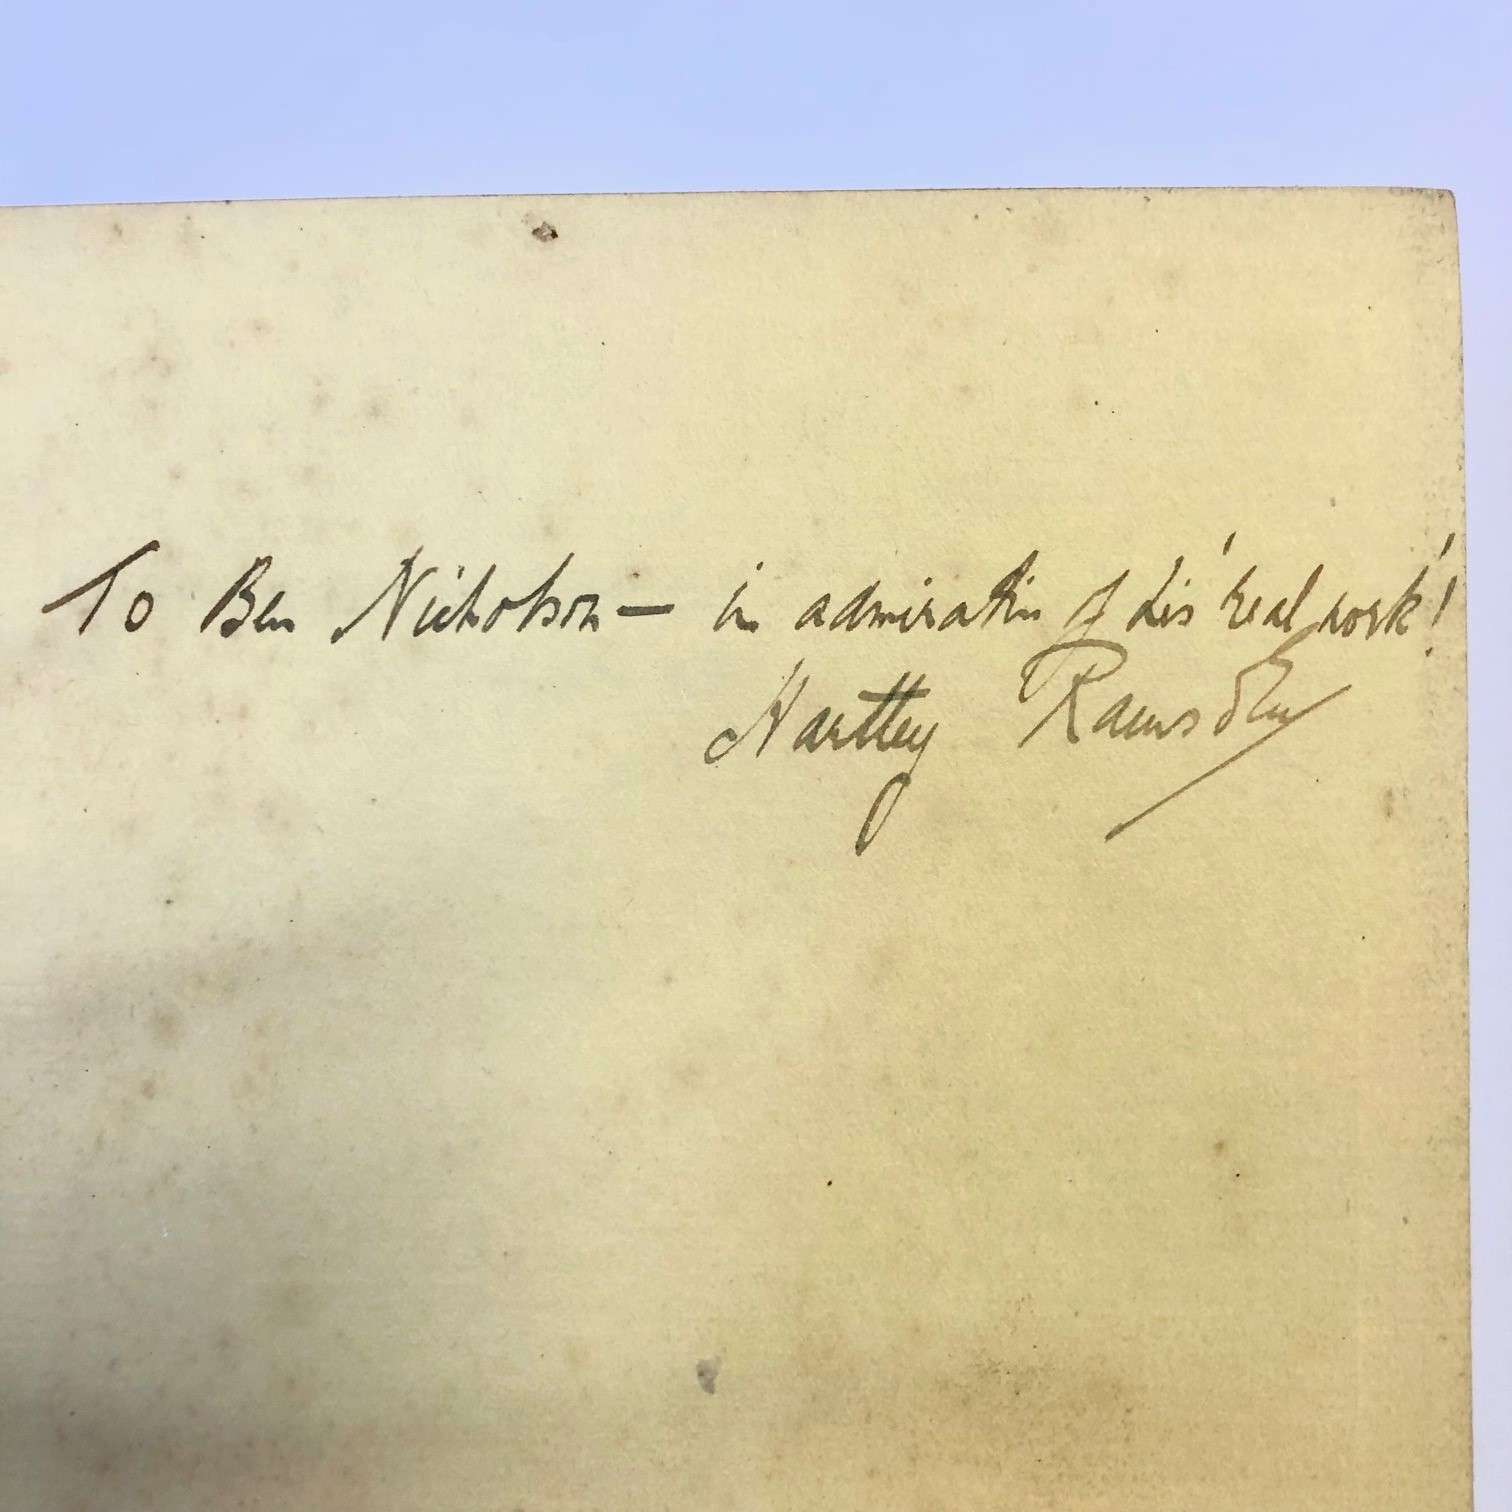 To Ben Nicholson — in admiration of his 'real work'!
Hartley Ramsden